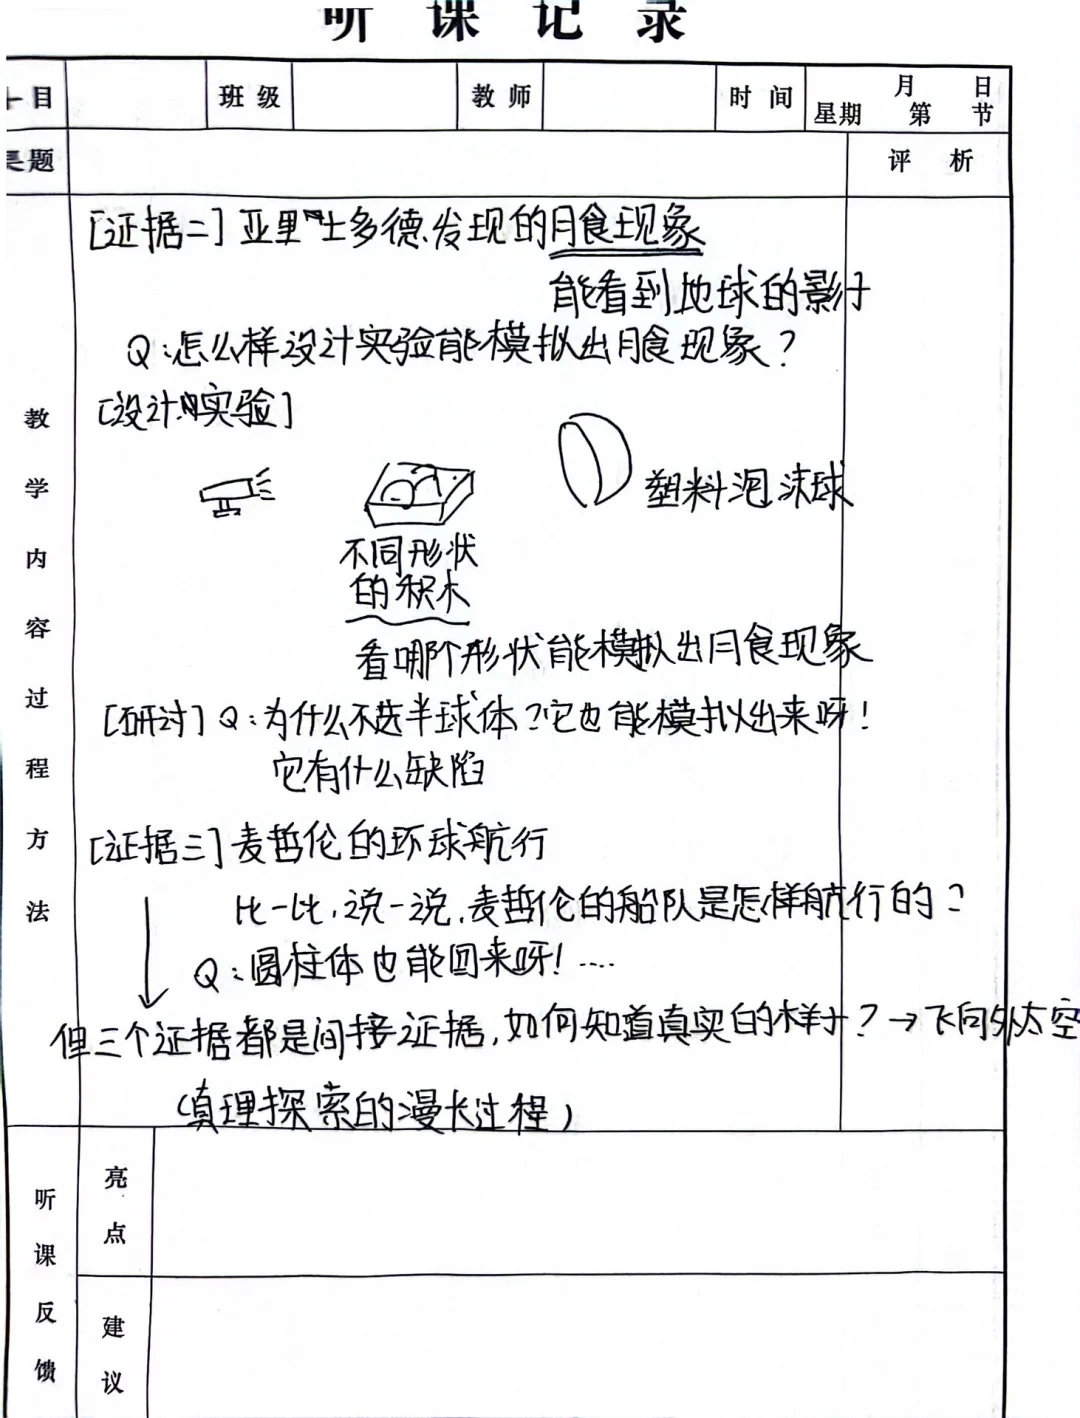 听课记录
目 班级 教师 时间 月 日
星期 第 节
题 评析
[证据二] 亚里士多德发现的月食现象
能看到地球的影子
Q:怎么样设计实验能模拟出月食现象？
[设计实验]
塑料泡沫球
不同形状
的积木
看哪个形状能模拟出月食现象
[研讨] Q:为什么不选半球体？它也能模拟出来呀！
它有什么缺陷
[证据三] 麦哲伦的环球航行
比一比,说一说,麦哲伦的船队是怎样航行的？
Q:圆柱体也能回来呀！....
但三个证据都是间接证据,如何知道真实的样子？→飞向外太空
(真理探索的漫长过程)
教学内容过程方法
听课反馈
亮点
建议